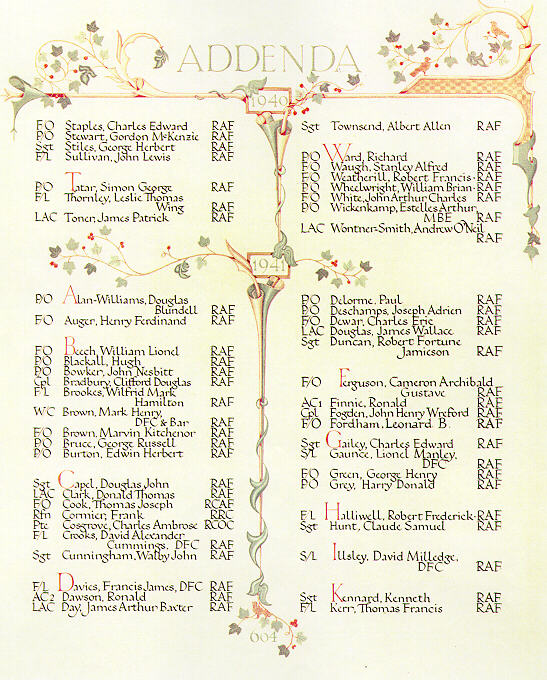 ADDENDA
1940
F/O Staples, Charles Edward RAF
P/O Stewart, Gordon McKenzie RAF
Sgt Stiles, George Herbert RAF
F/L Sullivan, John Lewis RAF
P/O Tatar, Simon George RAF
F/L Thornley, Leslie Thomas
Wing RAF
LAC Toner, James Patrick RAF
Sgt Townsend, Albert Allen RAF
P/O Ward, Richard RAF
F/O Waugh, Stanley Alfred RAF
F/O Weatherill, Robert Francis · RAF
P/O Wheelwright, William Brian · RAF
F/O White, John Arthur Charles RAF
P/O Wickenkamp, Estelles Arthur,
MBE RAF
LAC Wontner-Smith, Andrew O'Neil
RAF
1941
P/O Alan-Williams, Douglas
Blundell RAF
F/O Auger, Henry Ferdinand RAF
F/O Beech, William Lionel RAF
P/O Blackall, Hugh RAF
P/O Bowker, John Nesbitt RAF
Cpl Bradbury, Clifford Douglas RAF
F/L Brookes, Wilfrid Mark
Hamilton RAF
W/C Brown, Mark Henry,
DFC & Bar RAF
F/O Brown, Marvin Kitchenor RAF
P/O Bruce, George Russell RAF
P/O Burton, Edwin Herbert RAF
Sgt Capel, Douglas John RAF
LAC Clark, Donald Thomas RAF
F/O Cook, Thomas Joseph RCAF
Rfn Cormier, Frank RRC
Pte Cosgrove, Charles Ambrose RCOC
F/L Crooks, David Alexander
Cummings, DFC RAF
Sgt Cunningham, Walby John RAF
F/L Davies, Francis James, DFC RAF
AC2 Dawson, Ronald RAF
LAC Day, James Arthur Baxter RAF
P/O Delorme, Paul RAF
P/O Deschamps, Joseph Adrien RAF
F/O Dewar, Charles Eric RAF
LAC Douglas, James Wallace RAF
Sgt Duncan, Robert Fortune
Jamieson RAF
F/O Ferguson, Cameron Archibald
Gustave RAF
AC1 Finnie, Ronald RAF
Cpl Fogden, John Henry Wreford RAF
F/O Fordham, Leonard B. RAF
Sgt Gailey, Charles Edward RAF
S/L Gaunce, Lionel Manley,
DFC RAF
F/O Green, George Henry RAF
P/O Grey, Harry Donald RAF
F/L Halliwell, Robert Frederick · RAF
Sgt Hunt, Claude Samuel RAF
S/L Illsley, David Milledge,
DFC RAF
Sgt Kennard, Kenneth RAF
F/L Kerr, Thomas Francis RAF
604